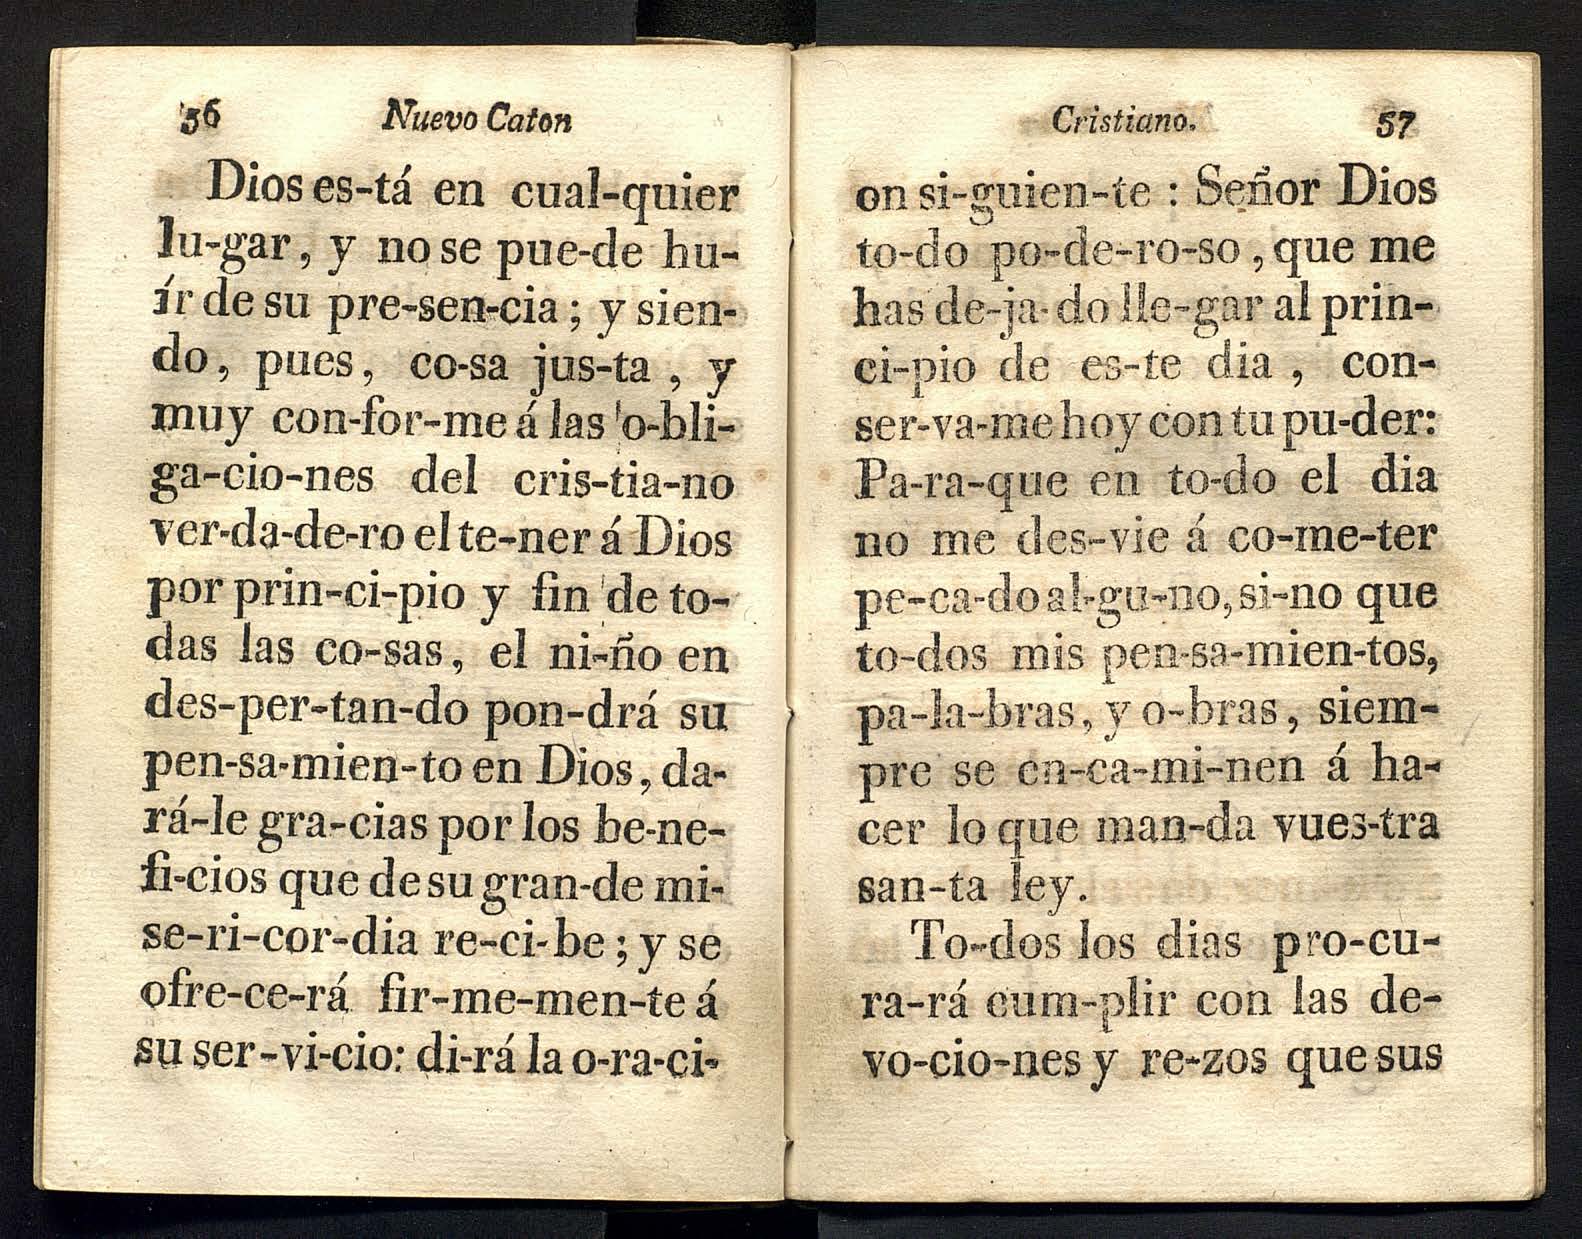 56 Nuevo Caton
Dios es-tá en cual-quier
lu-gar, y no se pue-de hu-
ír de su pre-sen-cia; y sien-
do, pues, co-sa jus-ta, y
muy con-for-me á las o-bli-
ga-cio-nes del cris-tia-no
ver-da-de-ro el te-ner á Dios
por prin-ci-pio y fin de to-
das las co-sas, el ni-ño en
des-per-tan-do pon-drá su
pen-sa-mien-to en Dios, da-
rá-le gra-cias por los be-ne-
fi-cios que de su gran-de mi-
se-ri-cor-dia re-ci-be; y se
ofre-ce-rá fir-me-men-te á
su ser-vi-cio: di-rá la o-ra-ci-
Cristiano. 57
on si-guien-te: Señor Dios
to-do po-de-ro-so, que me
has de-ja-do lle-gar al prin-
ci-pio de es-te dia, con-
ser-va-me hoy con tu pu-der:
Pa-ra-que en to-do el dia
no me des-vie á co-me-ter
pe-ca-do al-gu-no, si-no que
to-dos mis pen-sa-mien-tos,
pa-la-bras, y o-bras, siem-
pre se en-ca-mi-nen á ha-
cer lo que man-da vues-tra
san-ta ley.
To-dos los dias pro-cu-
ra-rá cum-plir con las de-
vo-cio-nes y re-zos que sus